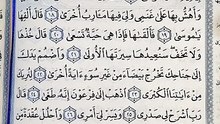 وَأَهُشُّ بِهَا عَلَىٰ غَنَمِي وَلِيَ فِيهَا مَـَٔارِبُ أُخْرَىٰ ١٨ قَالَ أَلْقِهَا
يَٰمُوسَىٰ ١٩ فَأَلْقَىٰهَا فَإِذَا هِيَ حَيَّةٌ تَسْعَىٰ ٢٠ قَالَ خُذْهَا
وَلَا تَخَفْ سَنُعِيدُهَا سِيرَتَهَا ٱلْأُولَىٰ ٢١ وَٱضْمُمْ يَدَكَ
إِلَىٰ جَنَاحِكَ تَخْرُجْ بَيْضَآءَ مِنْ غَيْرِ سُوٓءٍ ءَايَةً أُخْرَىٰ ٢٢ لِنُرِيَكَ
مِنْ ءَايَٰتِنَا ٱلْكُبْرَى ٢٣ ٱذْهَبْ إِلَىٰ فِرْعَوْنَ إِنَّهُۥ طَغَىٰ ٢٤
قَالَ رَبِّ ٱشْرَحْ لِي صَدْرِي ٢٥ وَيَسِّرْ لِيٓ أَمْرِي ٢٦ وَٱحْلُلْ عُقْدَةً مِّن